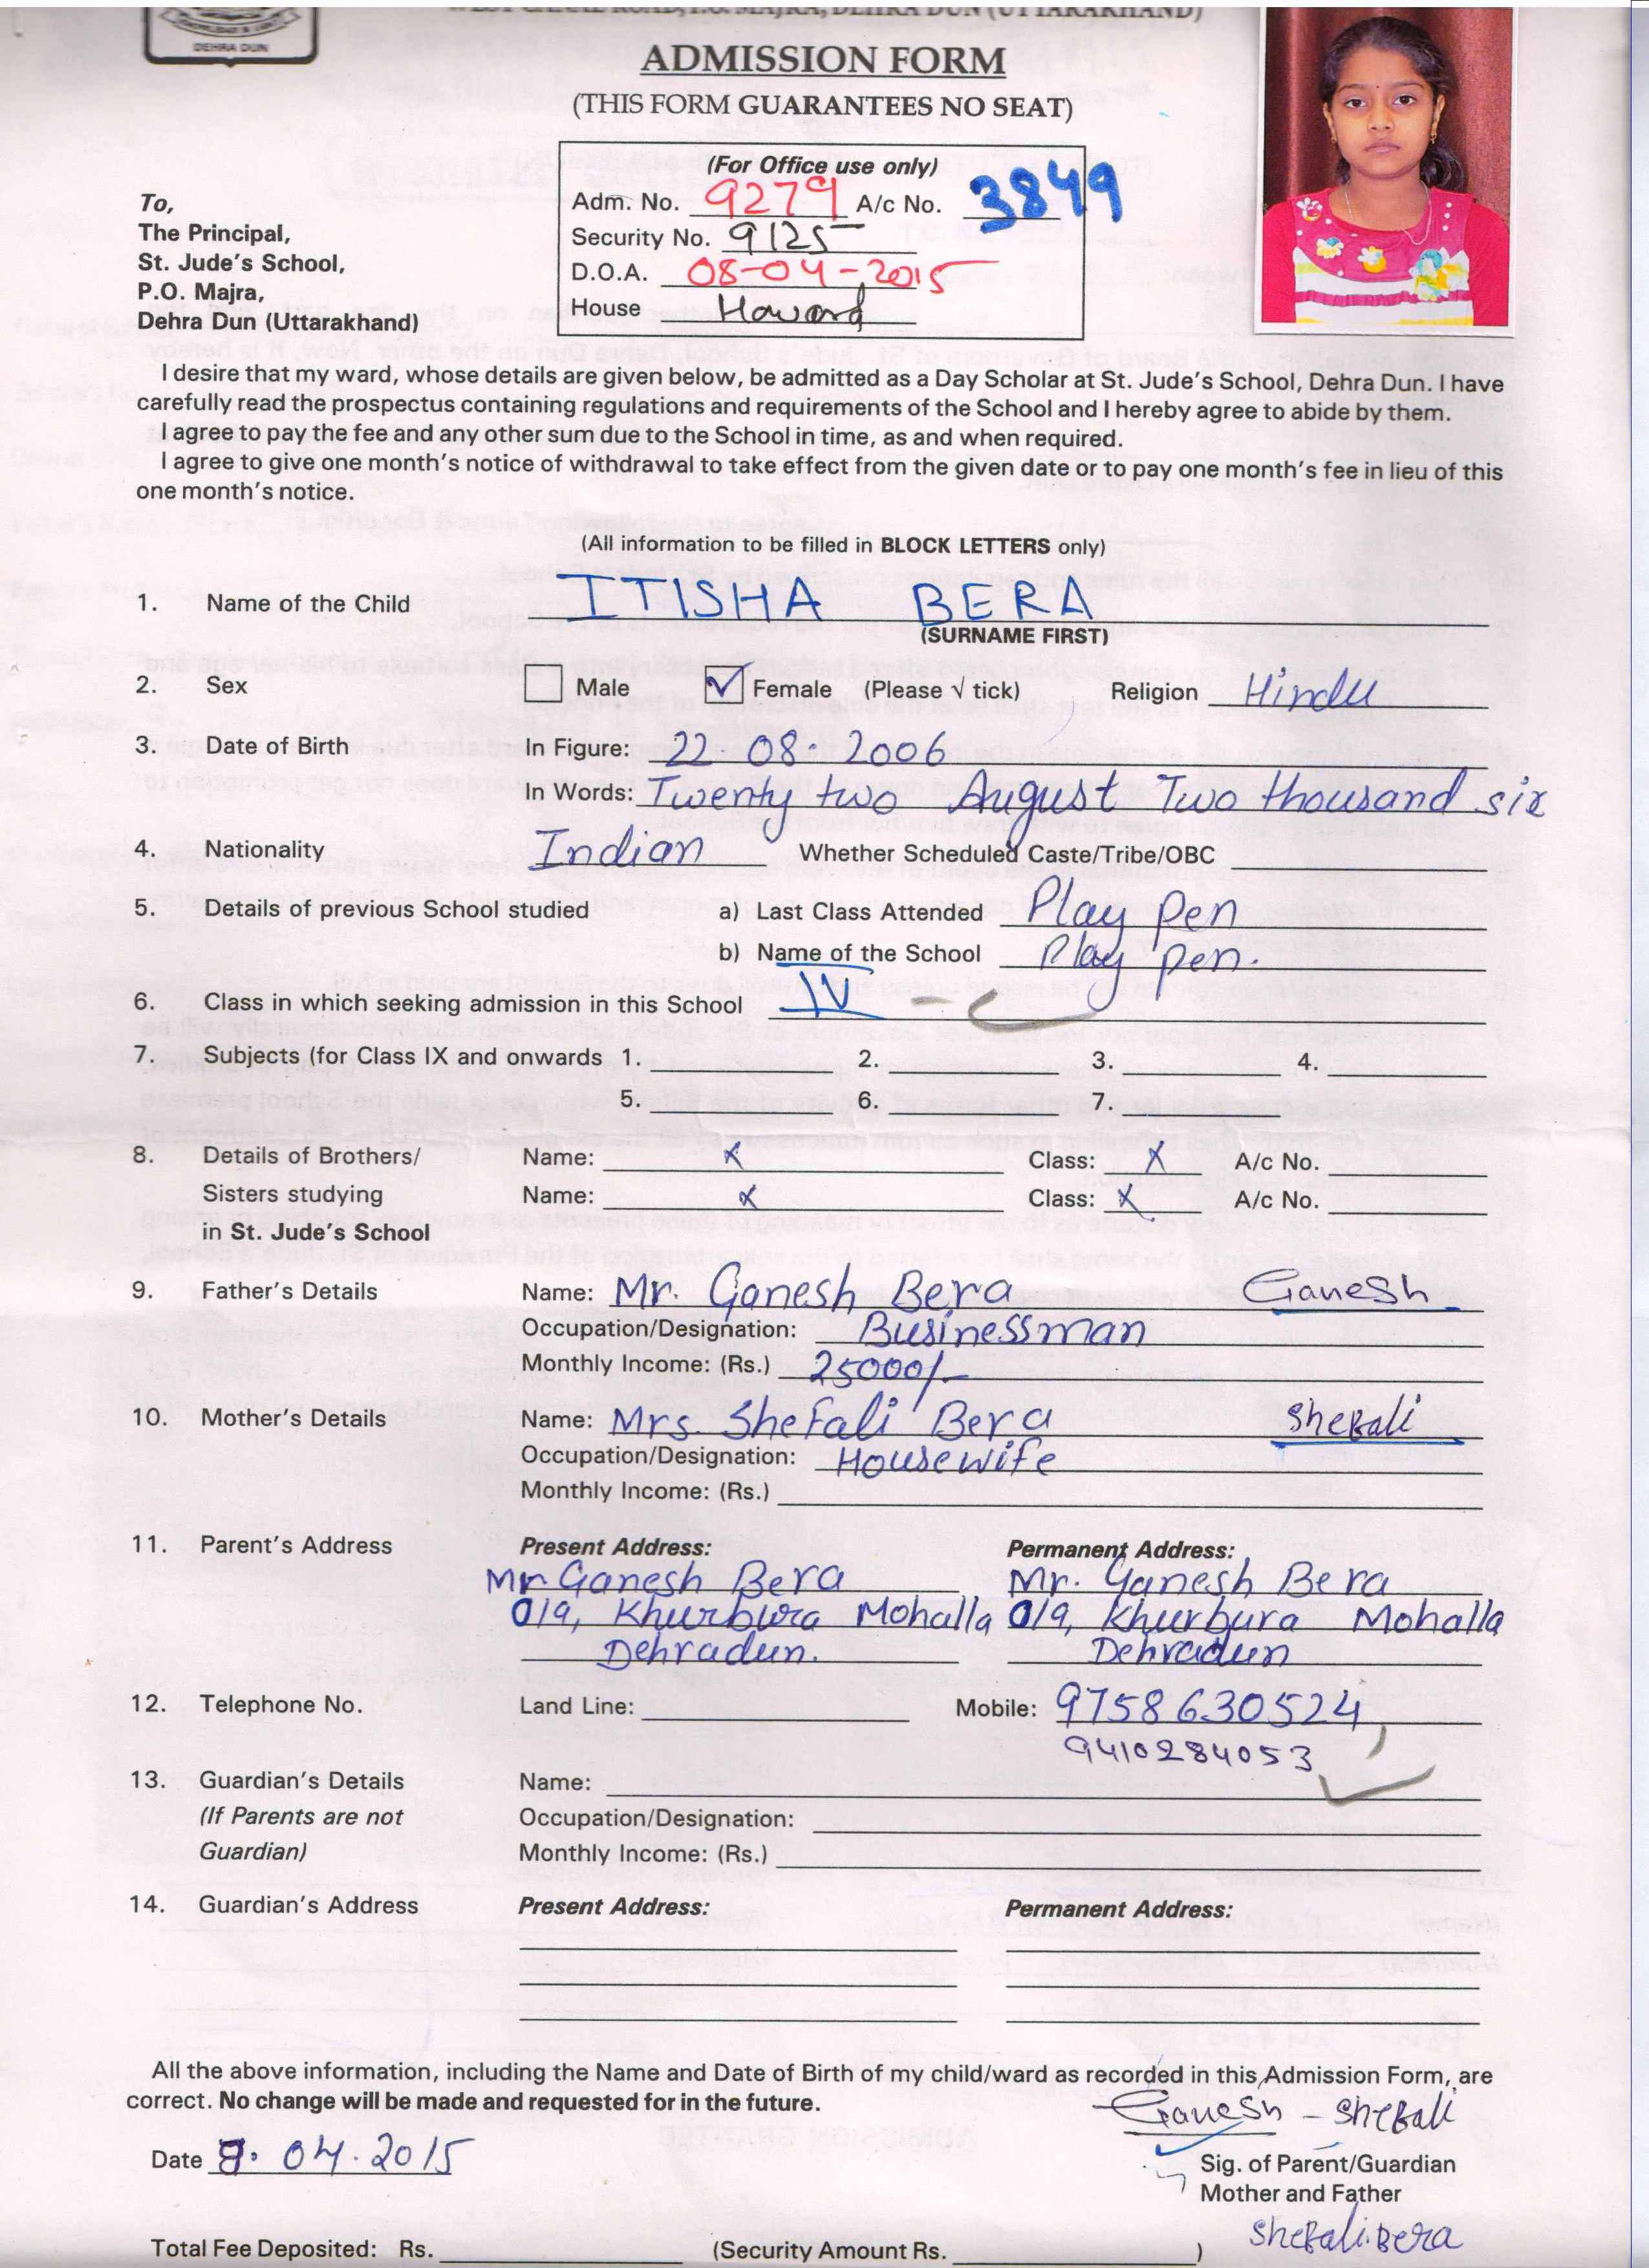 WEST CANAL ROAD, P.O. MAJRA, DEHRA DUN (UTTARAKHAND)
DEHRA DUN
ADMISSION FORM
(THIS FORM GUARANTEES NO SEAT)
(For Office use only)
Adm. No. 9279 A/c No. 3849
Security No. 9125
D.O.A. 08-04-2015
House Howard
To,
The Principal,
St. Jude's School,
P.O. Majra,
Dehra Dun (Uttarakhand)
I desire that my ward, whose details are given below, be admitted as a Day Scholar at St. Jude's School, Dehra Dun. I have
carefully read the prospectus containing regulations and requirements of the School and I hereby agree to abide by them.
I agree to pay the fee and any other sum due to the School in time, as and when required.
I agree to give one month's notice of withdrawal to take effect from the given date or to pay one month's fee in lieu of this
one month's notice.
(All information to be filled in BLOCK LETTERS only)
1. Name of the Child ITISHA BERA
(SURNAME FIRST)
2. Sex Male ✓ Female (Please √ tick) Religion Hindu
3. Date of Birth In Figure: 22 08. 2006
In Words: Twenty two August Two thousand six
4. Nationality Indian Whether Scheduled Caste/Tribe/OBC
5. Details of previous School studied a) Last Class Attended Play pen
b) Name of the School Play pen.
6. Class in which seeking admission in this School IV - C
7. Subjects (for Class IX and onwards 1. 2. 3. 4.
5. 6. 7.
8. Details of Brothers/ Name: x Class: x A/c No.
Sisters studying Name: x Class: x A/c No.
in St. Jude's School
9. Father's Details Name: Mr. Ganesh Bera Ganesh
Occupation/Designation: Businessman
Monthly Income: (Rs.) 25000/-
10. Mother's Details Name: Mrs. Shefali Bera Shefali
Occupation/Designation: Housewife
Monthly Income: (Rs.)
11. Parent's Address Present Address: Permanent Address:
Mr. Ganesh Bera Mr. Ganesh Bera
0/9, Khurbura Mohalla 0/9, Khurbura Mohalla
Dehradun. Dehradun
12. Telephone No. Land Line: Mobile: 9758630524,
9410284053
13. Guardian's Details Name:
(If Parents are not Occupation/Designation:
Guardian) Monthly Income: (Rs.)
14. Guardian's Address Present Address: Permanent Address:
All the above information, including the Name and Date of Birth of my child/ward as recorded in this Admission Form, are
correct. No change will be made and requested for in the future.
Ganesh - Shefali
Date 8. 04.2015
Sig. of Parent/Guardian
Mother and Father
Shefali.Bera
Total Fee Deposited: Rs. (Security Amount Rs. )